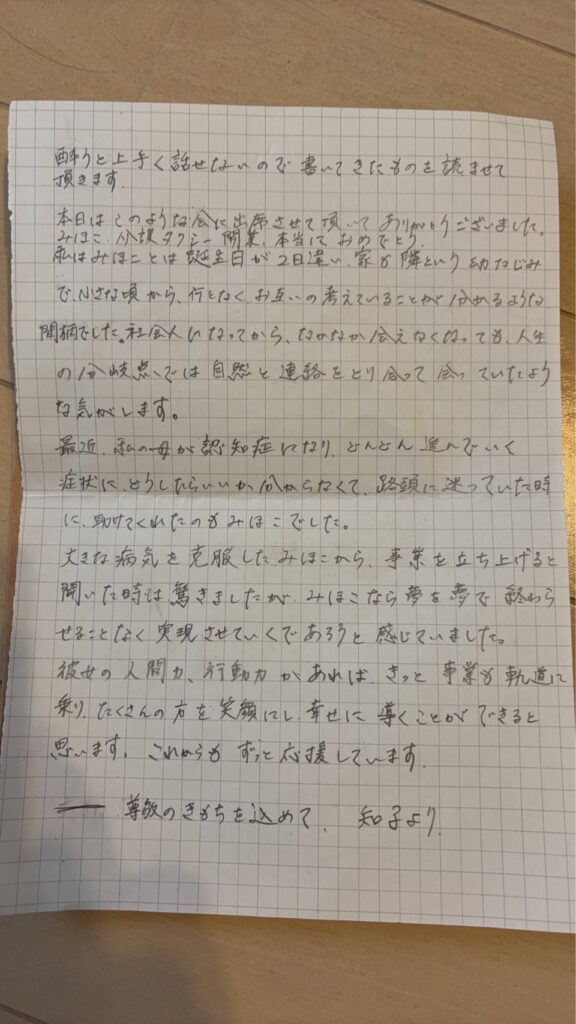 酔うと上手く話せないので書いてきたものを読ませて
頂きます。
本日はこのような会に出席させて頂いてありがとうございました。
みほこ、介護タクシー開業、本当におめでとう。
私はみほことは誕生日が2日違い、家が隣という幼なじみ
で、小さな頃から、何となくお互いの考えていることが分かるような
間柄でした。社会人になってから、なかなか会えなくなっても、人生
の分岐点では自然と連絡をとり合って会っていたよう
な気がします。
最近、私の母が認知症になり、どんどん進んでいく
症状に、どうしたらいいか分からなくて、路頭に迷っていた時
に、助けてくれたのもみほこでした。
大きな病気を克服したみほこから、事業を立ち上げると
聞いた時は驚きましたが、みほこなら夢を夢で終わら
せることなく実現させていくであろうと感じていました。
彼女の人間力、行動力があれば、きっと事業も軌道に
乗り、たくさんの方を笑顔にし、幸せに導くことができると
思います。これからもずっと応援しています。
尊敬のきもちを込めて、 知子より